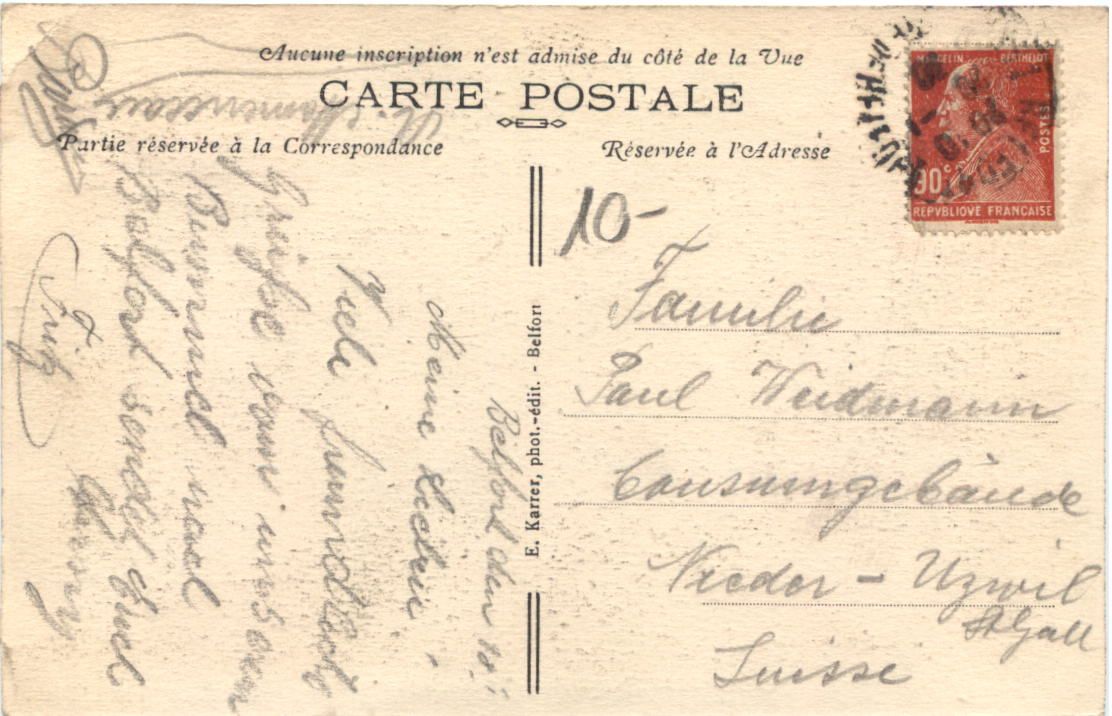 Aucune inscription n'est admise du côté de la Vue
CARTE POSTALE
Partie réservée à la Correspondance
Réservée à l'Adresse
MARCELIN BERTHELOT
POSTES
90c
REPVBLIQVE FRANÇAISE
10-
E. Karrer, phot.-édit. - Belfort
Familie
Paul Weidmann
Consumgebäude
Nieder - Uzwil
St Gall
Suisse
Belfort den 10.
Meine Lieben.
Viele freundliche
Grüße von unserem
Bummel nach
Belfort sendet Euch
Fritz